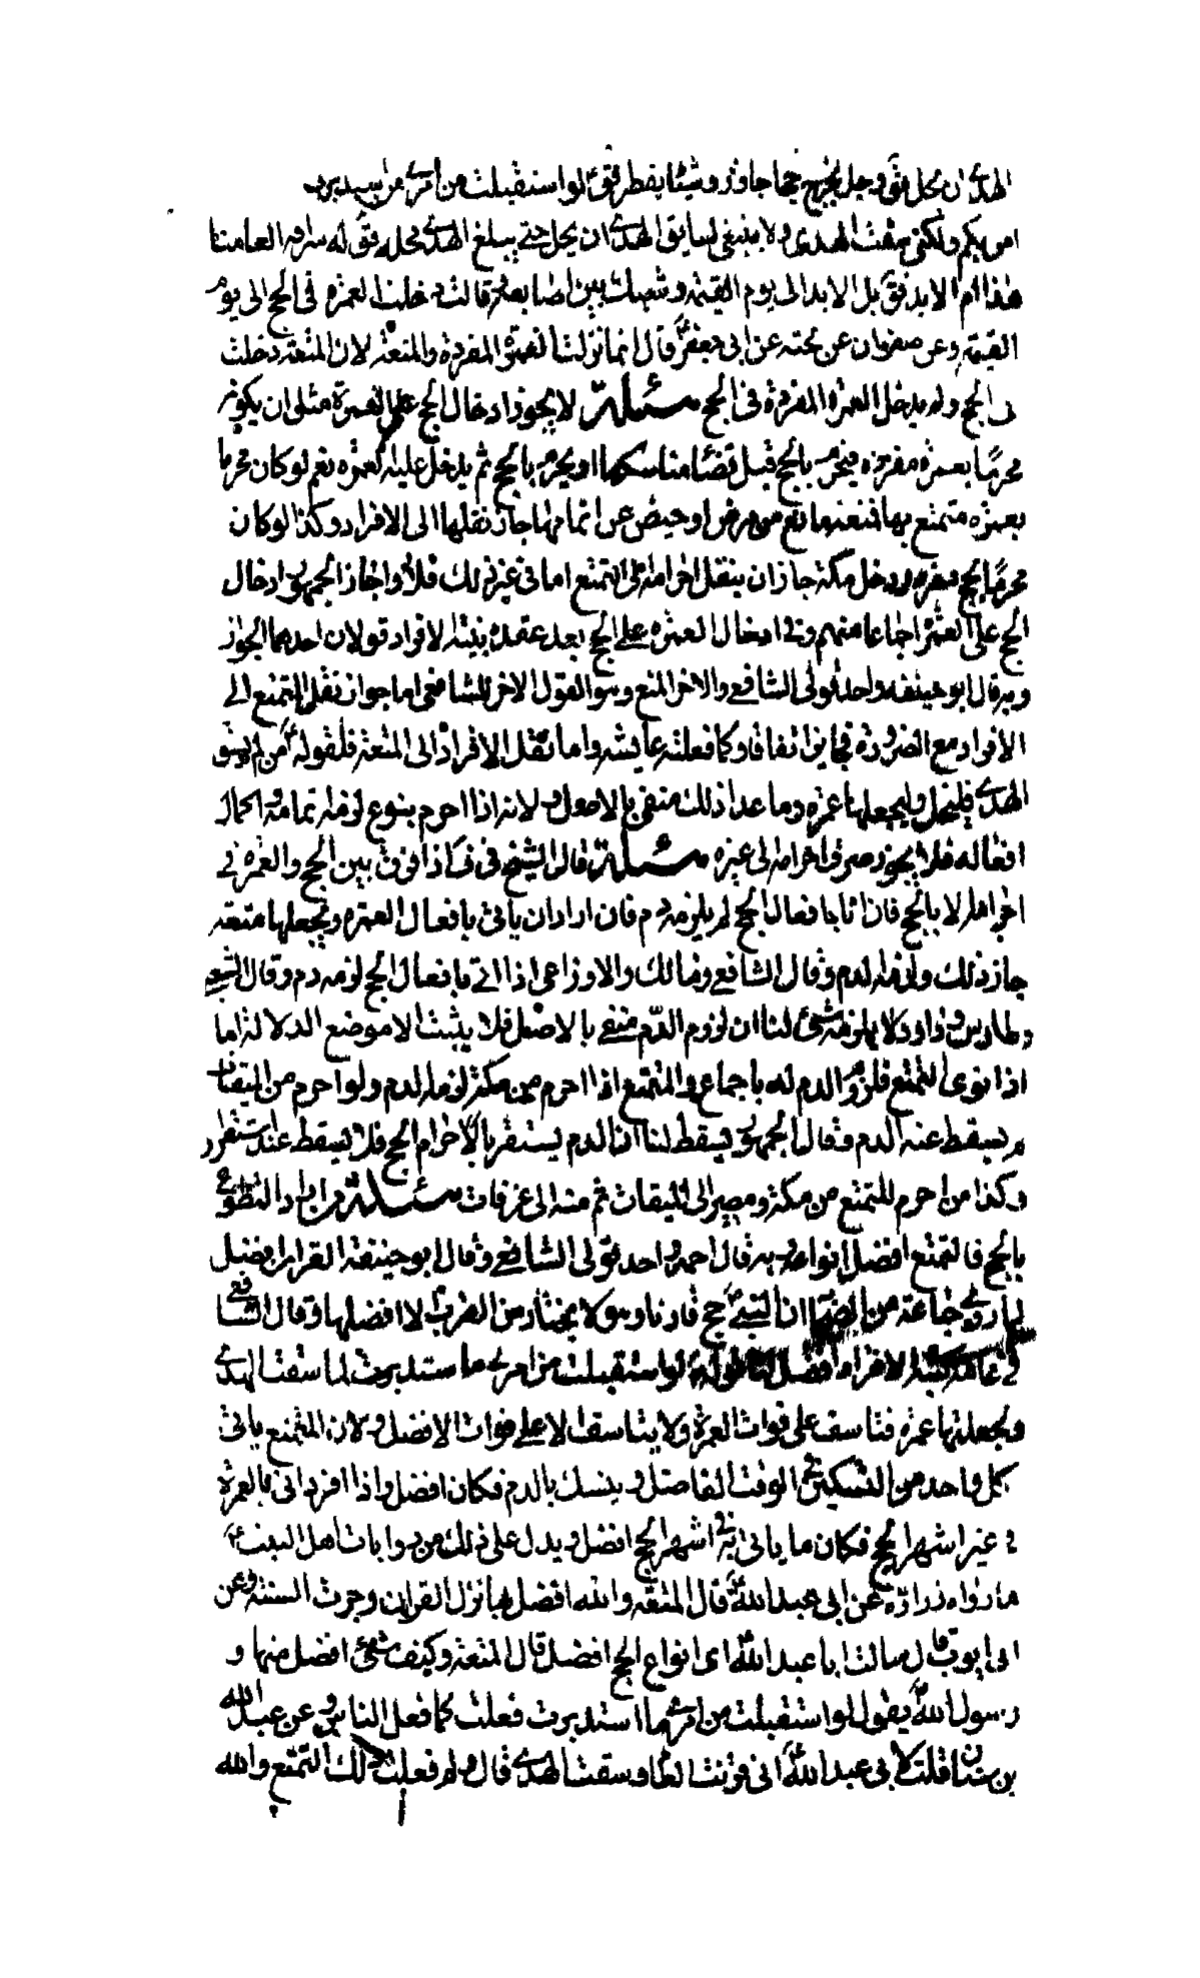 الهدي ان يحل فق رجل يخرج حجاجا ورؤسنا يقطر فق لو استقبلت من امري ما استدبرت
امرتكم ولكني سقت الهدي ولا ينبغي لسايق الهدي ان يحل حتى يبلغ الهدي محله فق له سراقه العامنا
هذا ام للابد فق بل الابد الى يوم القيمة وشبك بين اصابعه قال دخلت العمرة في الحج الى يوم
القيمة وعن صفوان عن نجيه عن ابي جعفر قال انما نزلت العمرة المفردة والمتعة لان المتعة دخلت
في الحج ولم يدخل العمرة المفردة في الحج مسئلة لا يجوز ادخال الحج على العمرة مثل ان يكون
محرمًا بعمرة مفردة فيحرم بالحج قبل قضاء مناسكها او يحرم بالحج ثم يدخل عليه العمرة نعم لو كان محرما
بعمرة متمتع بها فمنعه مانع من مرض او حيض عن اتمامها جاز نقلها الى الافراد وكذا لو كان
محرمًا بحج مفرد ودخل مكة جاز ان ينقل احرامه الى التمتع اما في غير ذلك فلا واجاز الجمهور ادخال
الحج على العمرة اجماعا منهم وفي ادخال العمرة على الحج بعد عقده بنيته الافراد قولان احدهما الجواز
وبه قال ابو حنيفة واحد قولي الشافعي والاخر المنع وهو القول الاخر للشافعي اما جواز نقل المتمتع الى
الافراد مع الضرورة فجايز اتفاقا وكما فعلته عايشه واما نقل الافراد الى المتعة فلقوله من لم يسق
الهدي فليحل وليجعلها عمرة وما عدا ذلك منفي بالاصل ولانه اذا احرم بنوع لزمه تمامه واكمال
افعاله فلا يجوز صرف احرامه الى غيره مسئلة قال الشيخ في ف اذا قرن بين الحج والعمرة في
احرامه لا بالحج فان اتا بافعال الحج لم يلزمه دم فان اراد ان ياتي بافعال العمرة ويجعلها متعة
جاز ذلك ولزمه الدم وقال الشافعي ومالك والاوزاعي اذا اتى بافعال الحج لزمه دم وقال الشعبي
وطاوس وداود لا يلزمه شئ لنا ان لزوم الدم منفي بالاصل فلا يثبت الا موضع الدلالة اما
اذا نوى التمتع فلزوم الدم له باجماع والمتمتع اذا احرم من مكة لزمه الدم ولو احرم من الميقات
لم يسقط عنه الدم وقال الجمهور يسقط لنا ان الدم يستقر بالاحرام الحج فلا يسقط عند استقراره
وكذا من احرم للتمتع من مكة ومضى الى الميقات ثم منه الى عرفات مسئلة من اراد التطوع
بالحج فالتمتع افضل انواعه وبه قال احمد واحد قولي الشافعي وقال ابو حنيفة القران افضل
لما روى جماعة من الصحابة ان النبي حج قارنا وهو لا يختار من القرب الا افضلها وقال الشافعي
في عامة كتبه الافراد افضل لنا قوله لو استقبلت من امري ما استدبرت لما سقت الهدي
ولجعلتها عمرة فتاسف على فوات العمرة ولا يتاسف الا على فوات الافضل ولان المتمتع ياتي
بكل واحد من النسكين في الوقت الفاضل وينسك بالدم فكان افضل واذا افرد اتى بالعمرة
في غير اشهر الحج فكان ما ياتي به في اشهر الحج افضل ويدل على ذلك من روايات اهل البيت
ما رواه زرارة عن ابي عبد الله قال المتعة والله افضل وبها نزل القران وجرت السنة وعن
ابي ايوب قال سالت ابا عبد الله اى انواع الحج افضل قال المتعة وكيف شئ افضل منها و
رسول الله يقول لو استقبلت من امري ما استدبرت فعلت كما فعل الناس وعن عبد الله
بن سنان قلت لابي عبد الله اني قرنت العام وسقت الهدي قال ولم فعلت ذلك التمتع والله